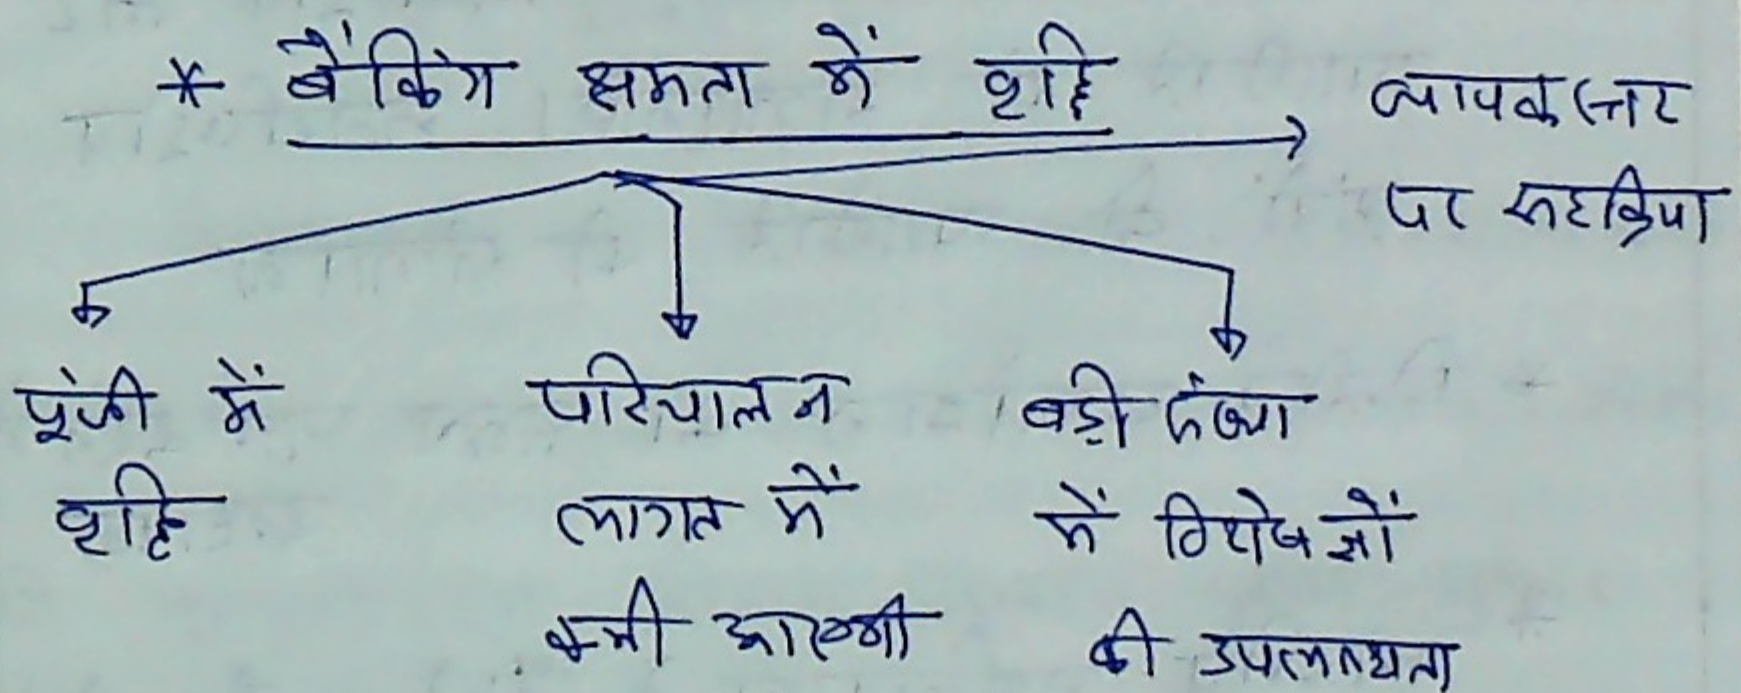 * बैंकिंग क्षमता में वृद्धि
व्यापक स्तर
पर
पूंजी में
वृद्धि
परिचालन
लागत में
कमी आएगी
बड़ी संख्या
में विशेषज्ञों
की उपलब्धता